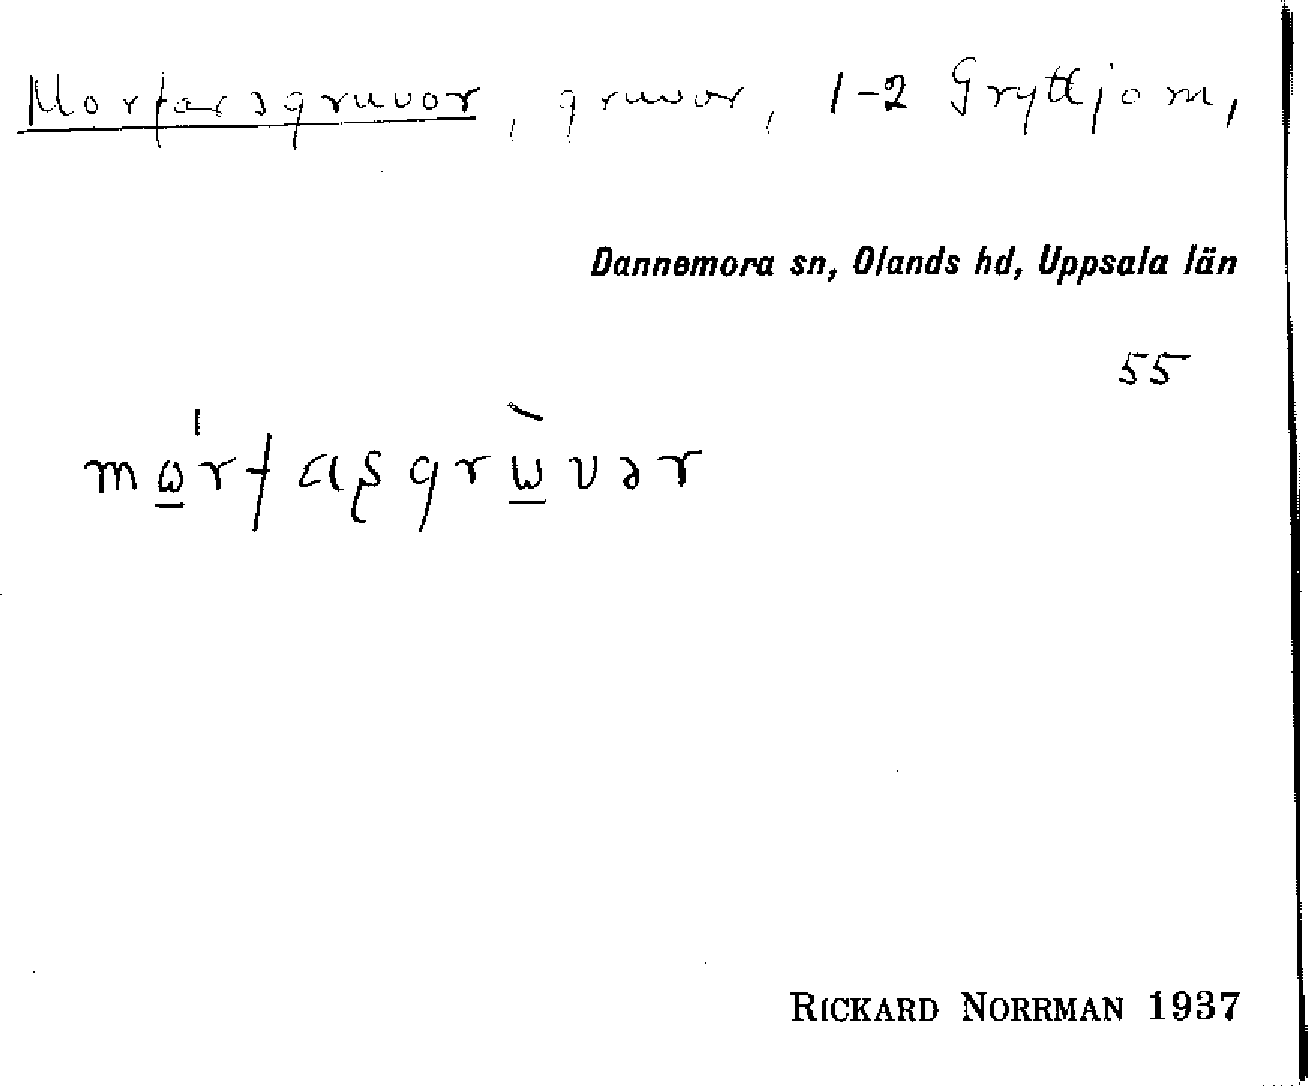 Morfarsgruvor, gruvor, 1-2 Gryttjom,
Dannemora sn, Olands hd, Uppsala län
55
mώ̲rfaʂgrὼ̲vər
RICKARD NORRMAN 1937